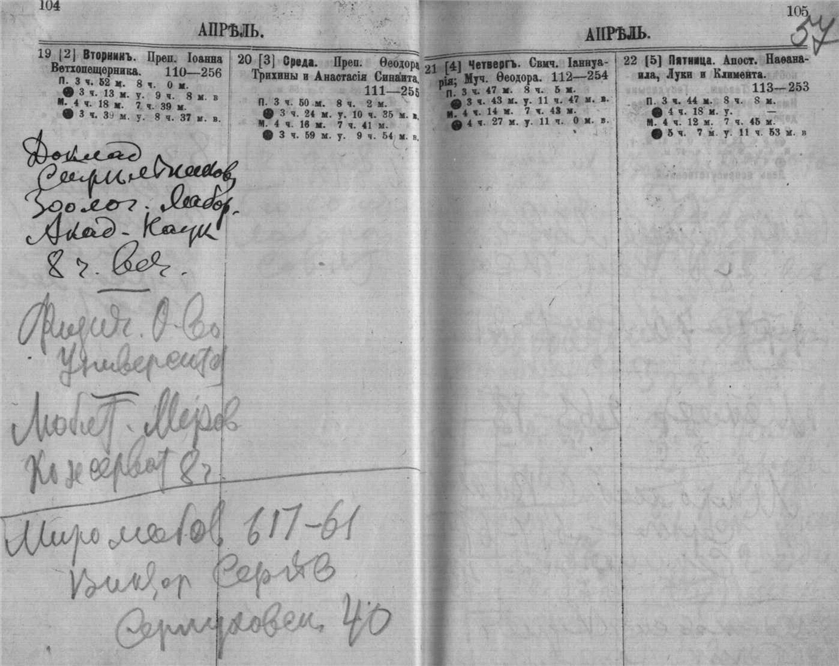 104
АПРѢЛЬ.
19 [2] Вторникъ. Преп. Іоанна
Ветхопещерника. 110—256
П. 3 ч. 52 м. 8 ч. 0 м.
3 ч. 13 м. у. 9 ч. 8 м. в
М. 4 ч. 18 м. 7 ч. 39 м.
3 ч. 39 м. у. 8 ч. 37 м. в.
20 [3] Среда. Преп. Ѳеодора
Трихины и Анастасія Синаита.
111—255
П. 3 ч. 50 м. 8 ч. 2 м.
3 ч. 24 м. у. 10 ч. 35 м. в.
М. 4 ч. 16 м. 7 ч. 41 м.
3 ч. 59 м. у. 9 ч. 54 м. в.
Доклад
Зоолог. Лабор.
Акад. Наук
8 ч. веч.
Физич. О-во
Университ
Кожсерват 8 ч.
617-61
Виктор Сергѣв
Серпуховск. 40
105
57
АПРѢЛЬ.
21 [4] Четвергъ. Свмч. Іаннуа-
рія; Муч. Ѳеодора. 112—254
П. 3 ч. 47 м. 8 ч. 5 м.
3 ч. 43 м. у. 11 ч. 47 м. в.
М. 4 ч. 14 м. 7 ч. 43 м.
4 ч. 27 м. у. 11 ч. 0 м. в.
22 [5] Пятница. Апост. Наѳана-
ила, Луки и Климента.
113—253
П. 3 ч. 44 м. 8 ч. 8 м.
4 ч. 18 м. у. —
М. 4 ч. 12 м. 7 ч. 45 м.
5 ч. 7 м. у. 11 ч. 53 м. в